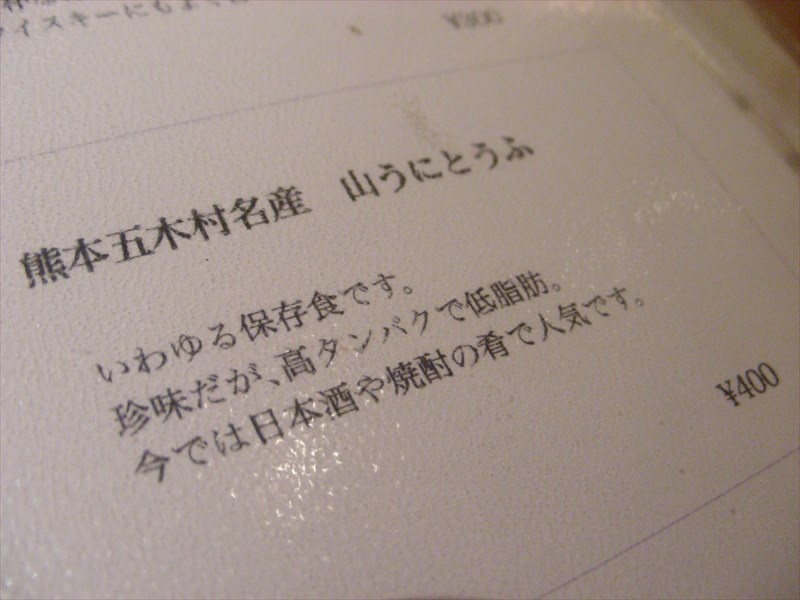 イスキーにもよく
¥300
熊本五木村名産　山うにとうふ
いわゆる保存食です。
珍味だが、高タンパクで低脂肪。
今では日本酒や焼酎の肴で人気です。
¥400